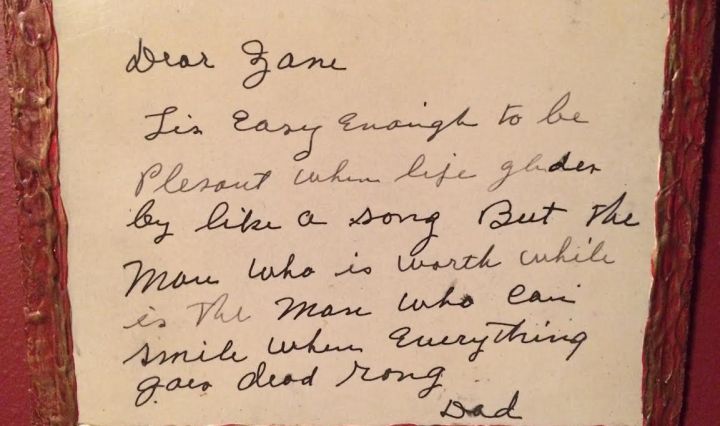 Dear Zane
Tis Easy Enough to be
Plesant when life glides
by like a song But the
Man who is worth while
is the Man who Can
smile when Everything
goes dead rong
Dad